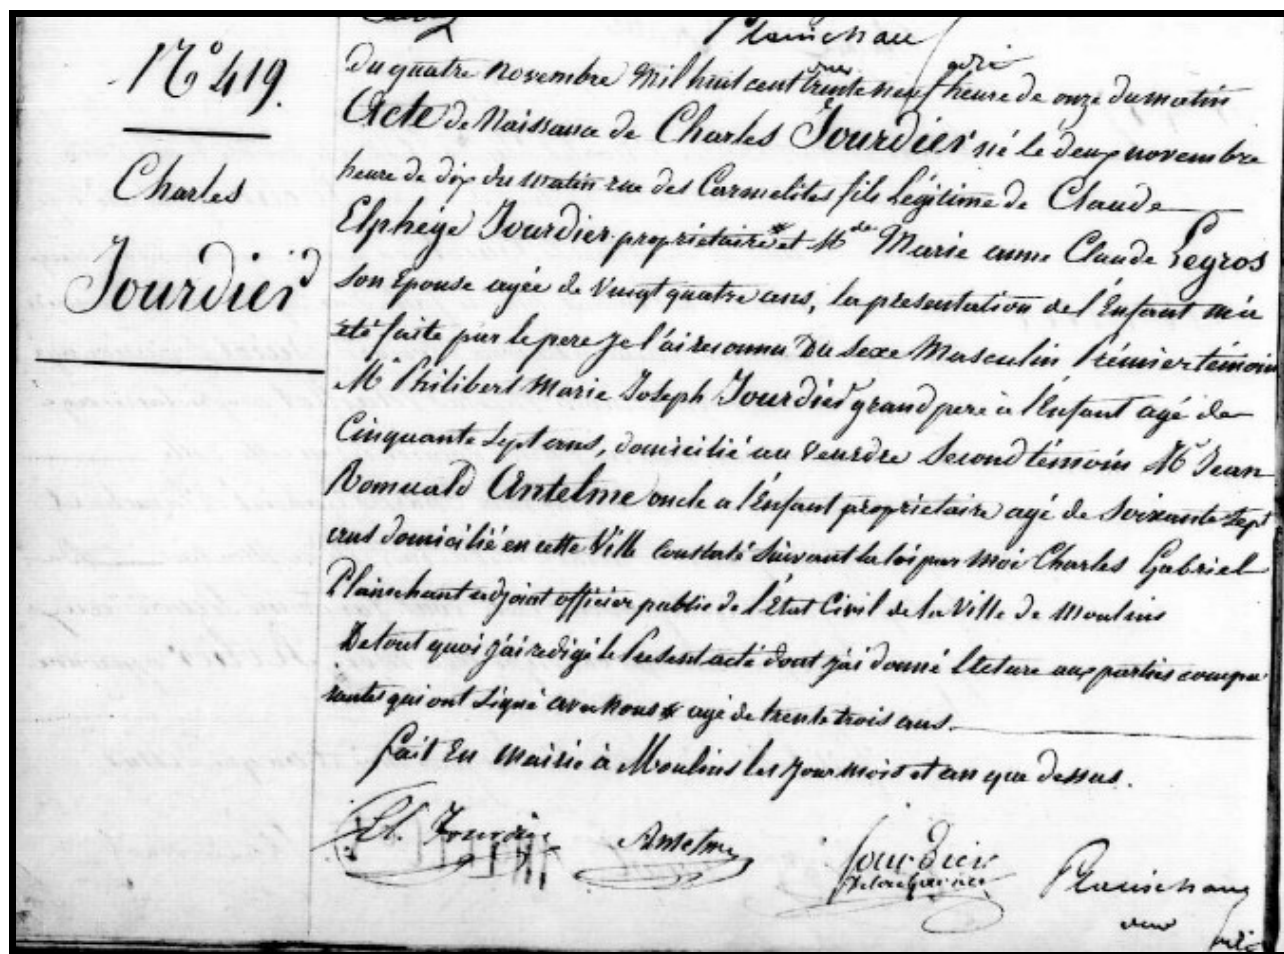 Plainchau
adj
N° 419.
Charles
Jourdier
Du quatre novembre Mil huit cent trente neuf heure de onze du matin
Acte de Naissance de Charles Jourdier né le deux novembre
heure de dix du matin rue des Carmelites fils Légitime de Claude
Elphège Jourdier propriétaire * et Mde Marie anne Claude Legros
son Epouse agée de vingt quatre ans, la présentation de l'Enfant m'a
été faite par le pere je l'ai reconnu Du Sexe Masculin Prémier témoin
Mr Philibert Marie Joseph Jourdier grand pere a l'Enfant agé de
Cinquante Sept ans, domicilié au Veurdre Second témoin Mr Jean
Romuald Antelme oncle a l'Enfant propriétaire agé de Soixante Sept
ans domicilié en cette Ville Constaté Suivant la loi par moi Charles Gabriel
Plainchant adjoint officier public de l'Etat Civil de la Ville de Moulins
De tout quoi j'ai redigé le Présent acte dont j'ai donné lecture aux parties compa
rantes qui ont Signé avec nous * agé de trente trois ans.
fait En mairie à Moulins les jour mois et an que dessus.
Jourdier Antelme Jourdier Plainchau
adj